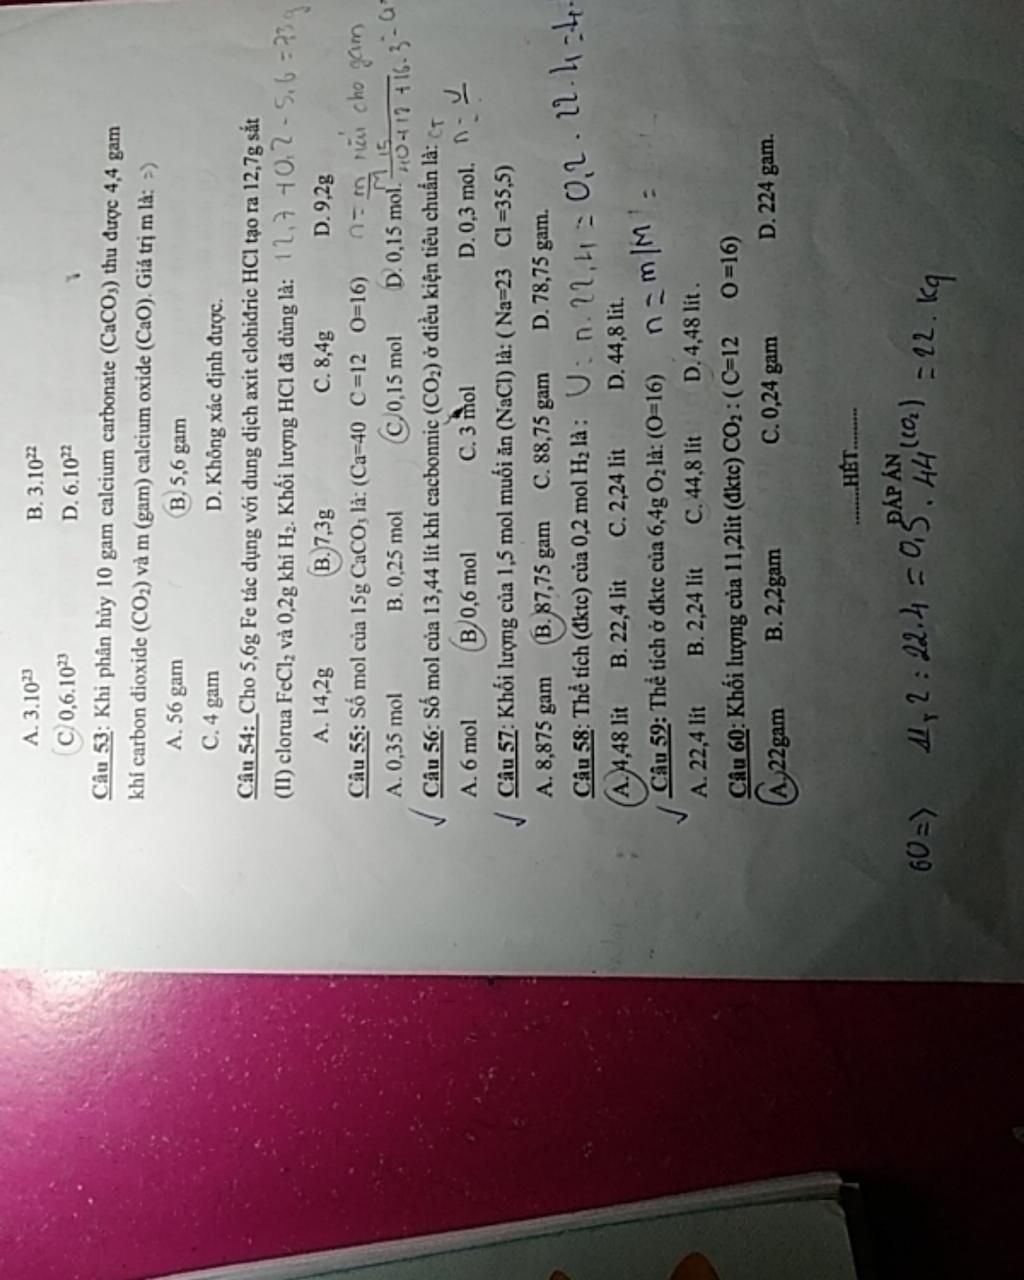 A. 3.10²³ B. 3.10²²
C. 0,6.10²³ D. 6.10²²
Câu 53: Khi phân hủy 10 gam calcium carbonate (CaCO₃) thu được 4,4 gam
khí carbon dioxide (CO₂) và m (gam) calcium oxide (CaO). Giá trị m là: =)
A. 56 gam B. 5,6 gam
C. 4 gam D. Không xác định được.
Câu 54: Cho 5,6g Fe tác dụng với dung dịch axit clohiđric HCl tạo ra 12,7g sắt
(II) clorua FeCl₂ và 0,2g khí H₂. Khối lượng HCl đã dùng là: 12,7 + 0,2 - 5,6 = 7,3g
A. 14,2g B. 7,3g C. 8,4g D. 9,2g
Câu 55: Số mol của 15g CaCO₃ là: (Ca=40 C=12 O=16) n = m/M nếu cho gam
A. 0,35 mol B. 0,25 mol C. 0,15 mol D. 0,15 mol. 15/40+12+16.3 =
Câu 56: Số mol của 13,44 lít khí cacbonnic (CO₂) ở điều kiện tiêu chuẩn là: CT
A. 6 mol B. 0,6 mol C. 3 mol D. 0,3 mol. n = V
Câu 57: Khối lượng của 1,5 mol muối ăn (NaCl) là: ( Na=23 Cl =35,5)
A. 8,875 gam B. 87,75 gam C. 88,75 gam D. 78,75 gam.
Câu 58: Thể tích (đktc) của 0,2 mol H₂ là : V = n. 22,4 = 0,2 . 22.4 = 4.
A. 4,48 lit B. 22,4 lit C. 2,24 lit D. 44,8 lit.
Câu 59: Thể tích ở đktc của 6,4g O₂ là: (O=16) n = m/M =
A. 22,4 lit B. 2,24 lit C. 44,8 lit D. 4,48 lit .
Câu 60: Khối lượng của 11,2lit (đktc) CO₂ : ( C=12 O=16)
A. 22gam B. 2,2gam C. 0,24 gam D. 224 gam.
..........HẾT..........
ĐÁP ÁN
60 => 11,2 : 22.4 = 0,5 . 44 (CO₂) = 22 . Kg